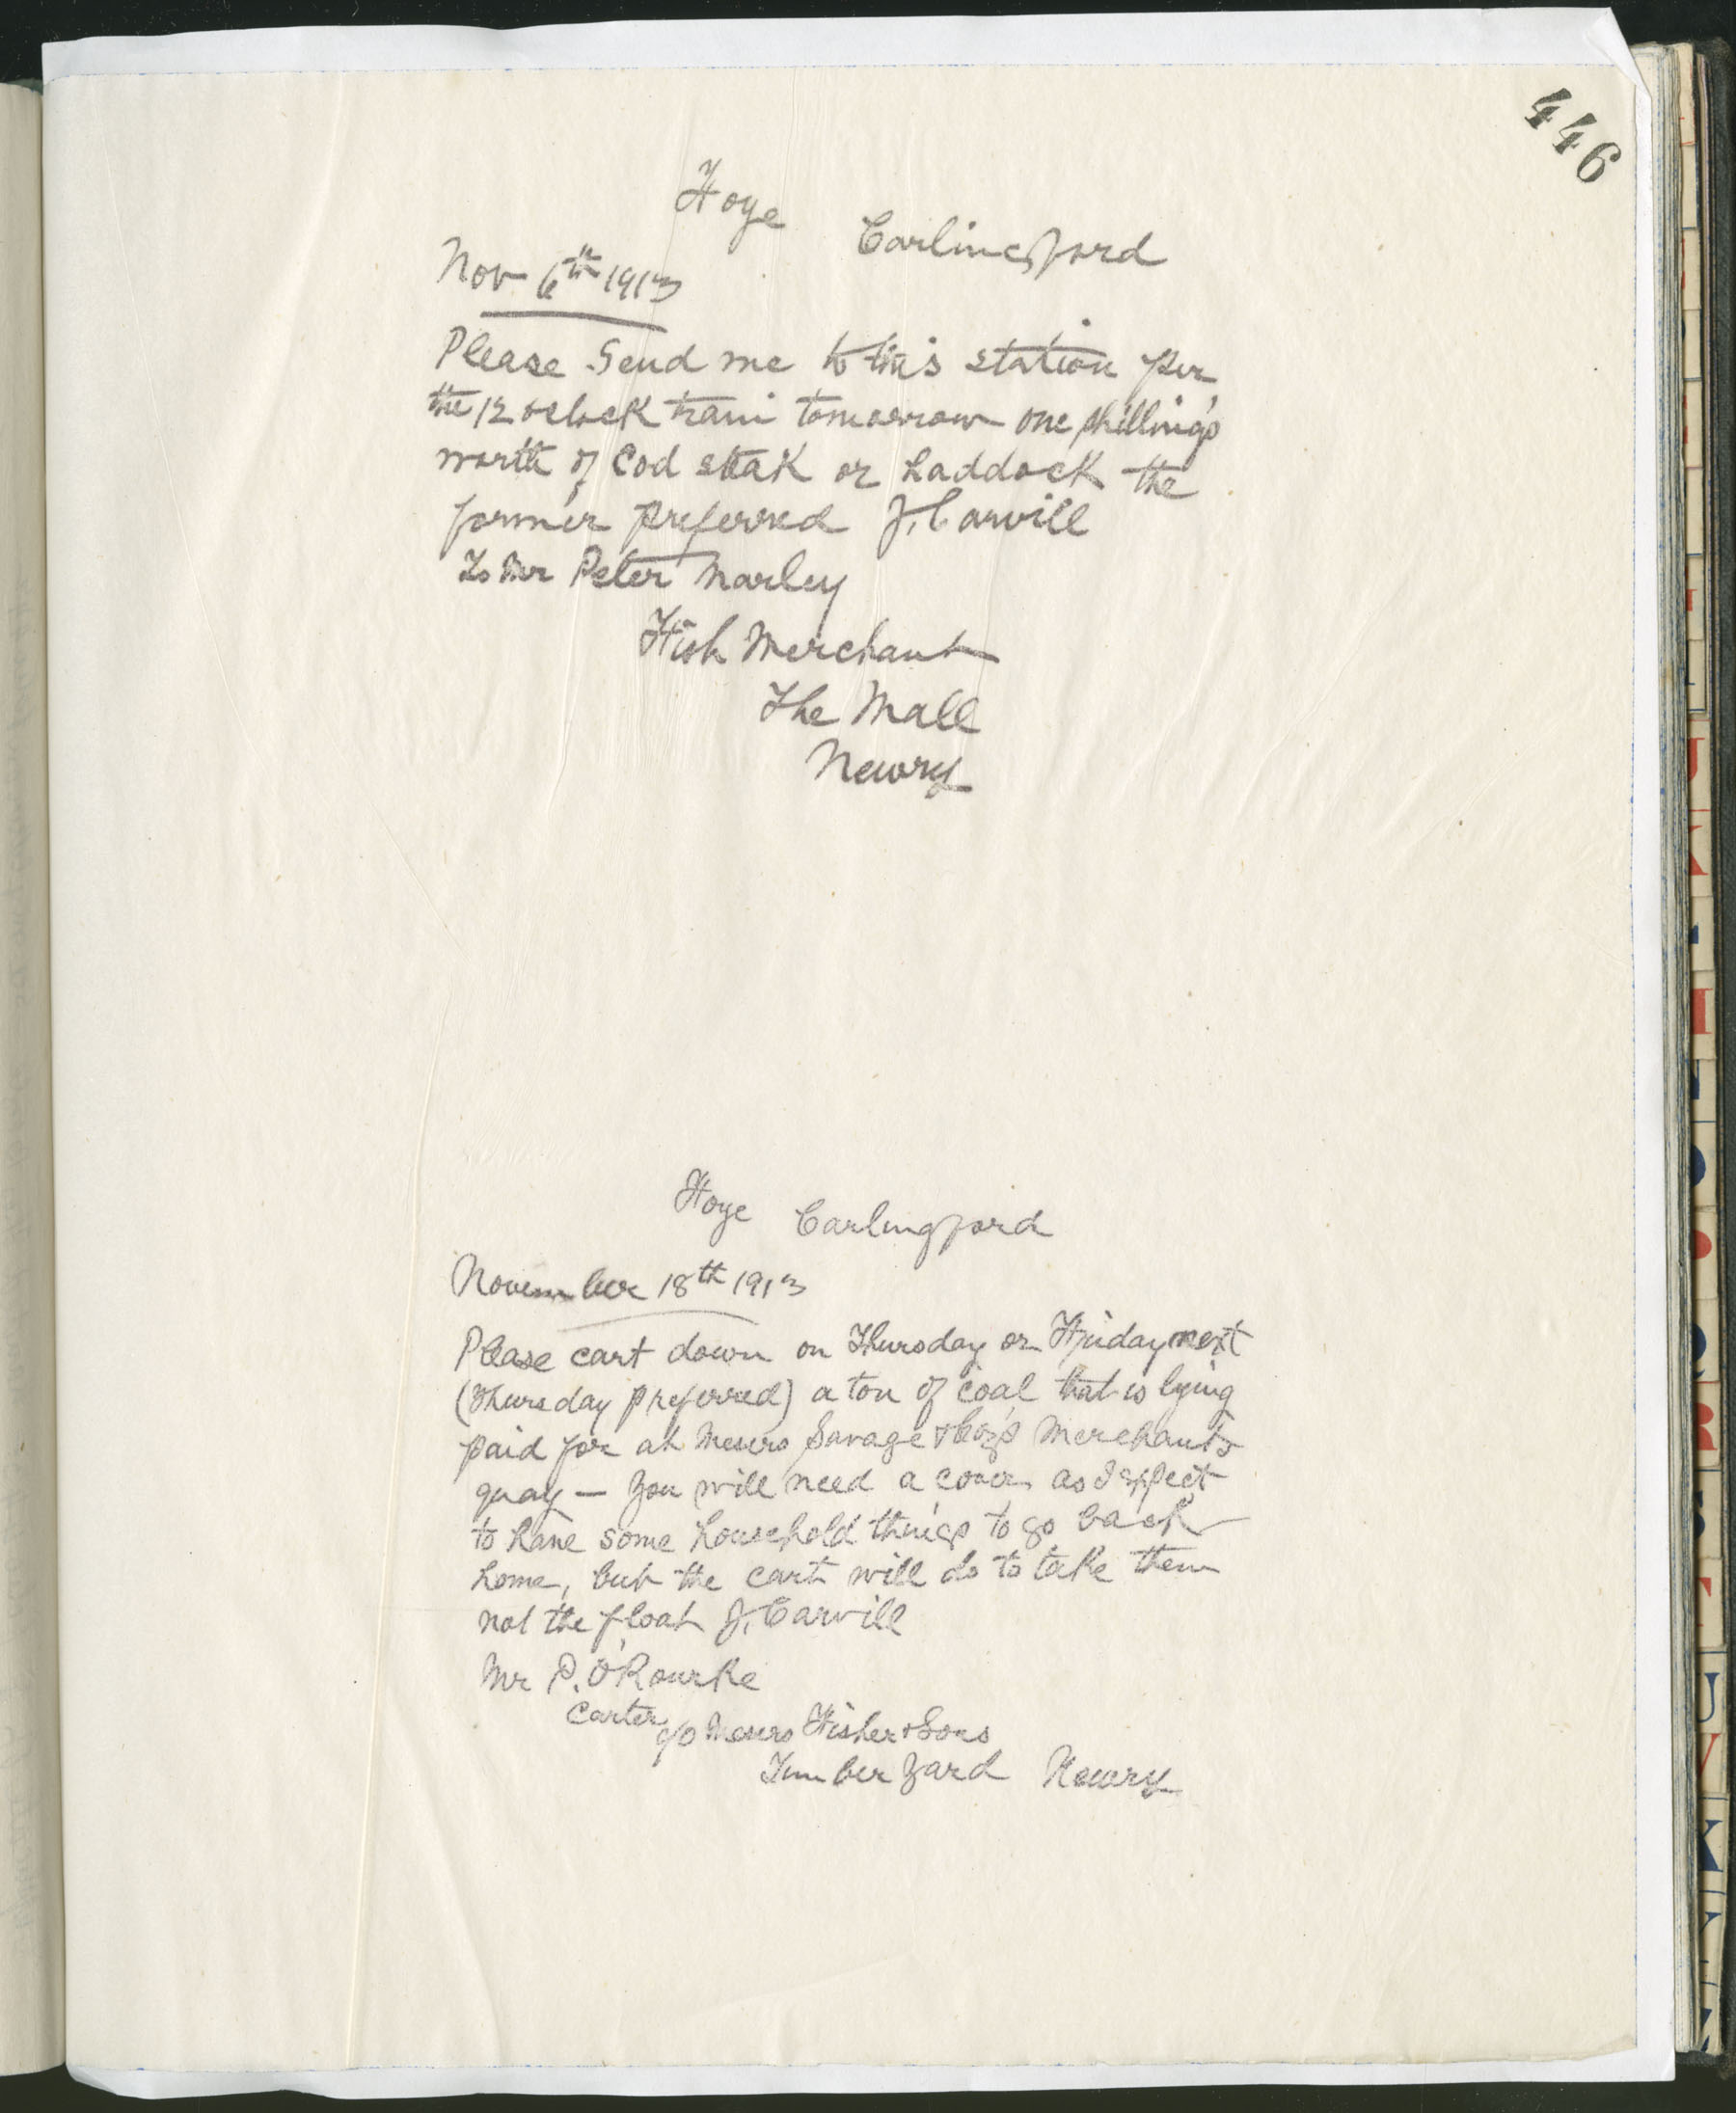 446
Foye Carlingford
Nov 6th 1913
Please Send me to this station per
the 12 oclock train tomorrow one shilling's
worth of Cod steak or haddock the
former preferred J. Carvill
To Mr Peter Marley
Fish Merchant
The Mall
Newry
Foye Carlingford
November 18th 1913
Please cart down on Thursday or Friday next
(Thursday preferred) a ton of coal that is lying
paid for at Messrs Savage & Coy's Merchants
quay — You will need a cover as I expect
to have some household things to go back
home, but the cart will do to take them
not the float J. Carvill
Mr P. O'Rourke
Carter
c/o Messrs Fisher & Sons
Timber Yard Newry